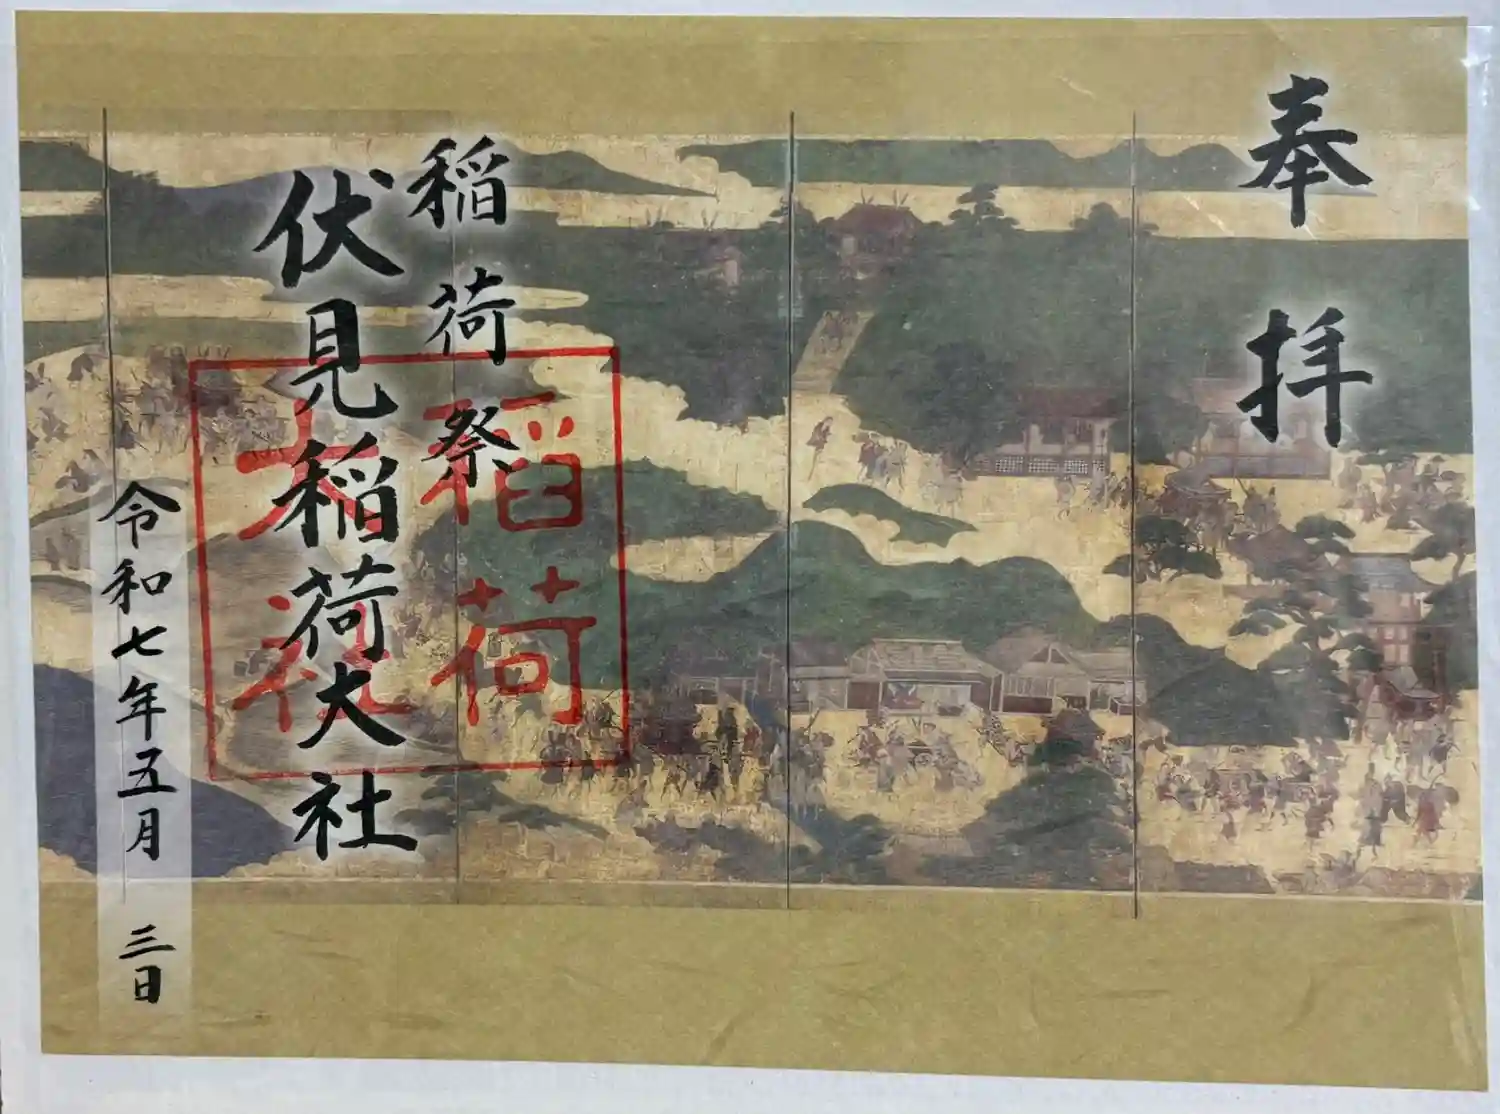 奉拝
稲荷祭
伏見稲荷大社
稲荷
大社
令和七年五月三日